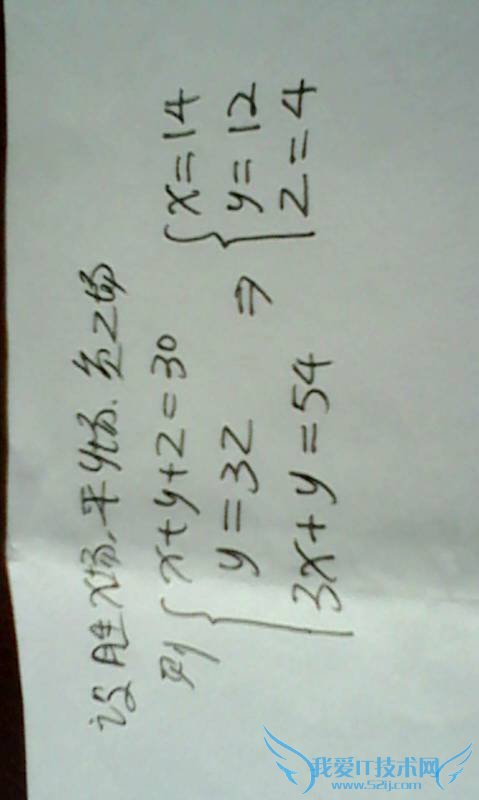 设胜x场,平y场.负z场
则{x+y+z=30
y=3z
3x+y=54
⇒
{x=14
y=12
z=4
我爱IT技术网
www.52ij.com